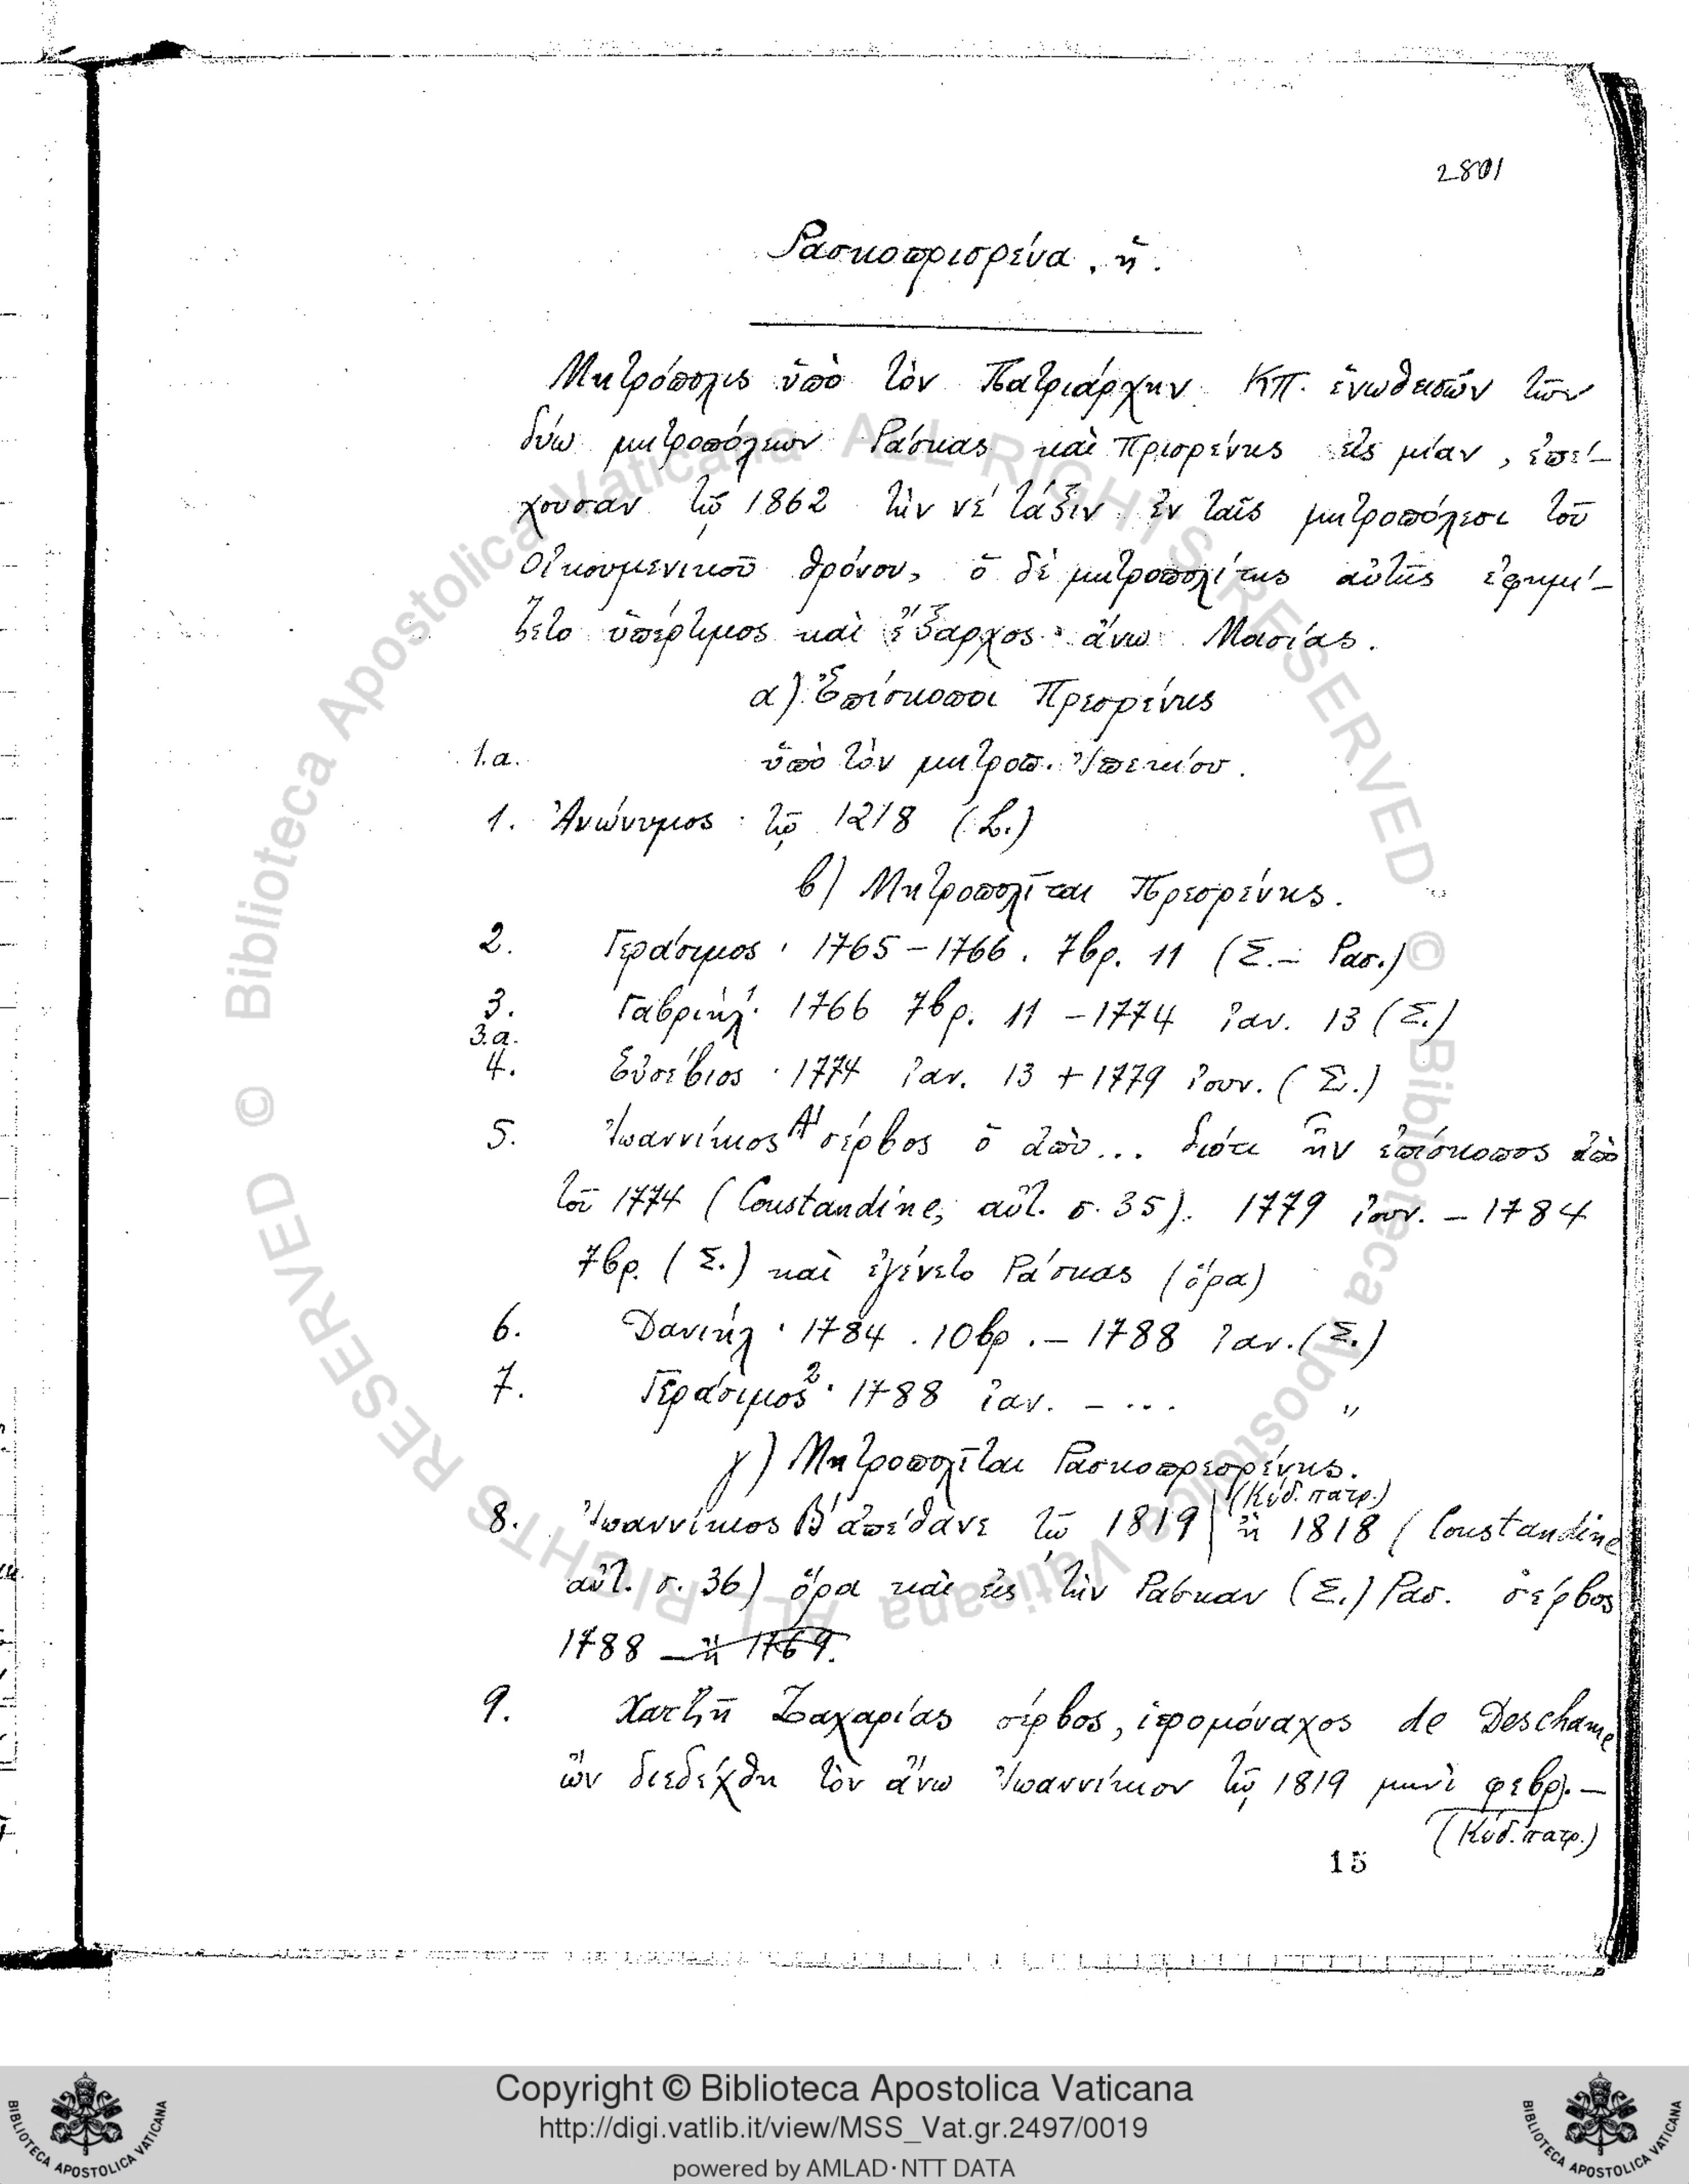 2801
Ρασκοπρισρένα, ἡ.
Μητρόπολις ὑπὸ τὸν Πατριάρχην ΚΠ. ἑνωθεισῶν τῶν
δύω μητροπόλεων Ράσκας καὶ Πρισρένης εἰς μίαν, ἐπέ-
χουσαν τῷ 1862 τὴν νέ τάξιν ἐν ταῖς μητροπόλεσι τοῦ
Οἰκουμενικοῦ θρόνου, ὁ δὲ μητροπολίτης αὐτῆς ἐφημί-
ζετο ὑπέρτιμος καὶ ἔξαρχος ἄνω Μασίας.
α) Ἐπίσκοποι Πρεσρένης
1.a. ὑπὸ τὸν μητροπ. Ἰπεκίου.
1. Ἀνώνυμος· τῷ 1218 (L.)
β) Μητροπολῖται Πρεσρένης.
2. Γεράσιμος· 1765-1766. 7βρ. 11 (Σ.- Ρασ.)
3. Γαβριήλ· 1766 7βρ. 11 - 1774 ἰαν. 13 (Σ.)
3.a.
4. Εὐσέβιος· 1774 ἰαν. 13 + 1779 ἰουν. (Σ.)
5. Ἰωαννίκιος Α' σέρβος ὁ ἀπὸ... διότι ἦν ἐπίσκοπος ἀπὸ
τοῦ 1774 (Constandine, αὐτ. σ. 35). 1779 ἰουν. - 1784
7βρ. (Σ.) καὶ ἐγένετο Ράσκας (ὅρα)
6. Δανιήλ· 1784. 10βρ. - 1788 ἰαν. (Σ.)
7. Γεράσιμος 2· 1788 ἰαν. - ... "
γ) Μητροπολῖται Ρασκοπρεσρένης.
(Κώδ. πατρ.)
8. Ἰωαννίκιος Β' ἀπέθανε τῷ 1819 | ἢ 1818 (Constandine
αὐτ. σ. 36) ὅρα καὶ εἰς τὴν Ράσκαν (Σ.) Ρασ. σέρβος
1788 - ἢ 1769.
9. Χατζῆ Ζαχαρίας σέρβος, ἱερομόναχος de Deschane
ὢν διεδέχθη τὸν ἄνω Ἰωαννίκιον τῷ 1819 μηνὶ φεβρ. -
(Κώδ. πατρ.)
15
Copyright © Biblioteca Apostolica Vaticana
http://digi.vatlib.it/view/MSS_Vat.gr.2497/0019
powered by AMLAD·NTT DATA